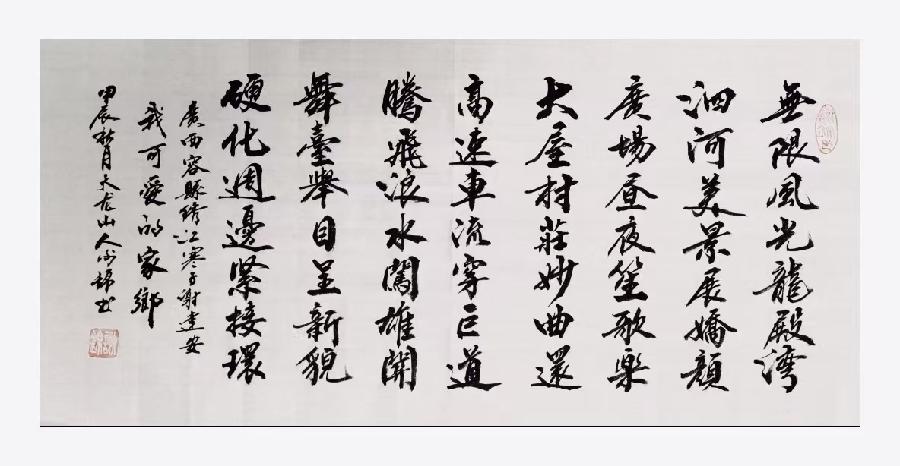 無限風光龍殿灣
泗河美景展嬌顏
廣場昼夜笙歌樂
大屋村莊妙曲還
高速車流穿巨道
騰飛浪水闖雄開
舞臺舉目呈新貌
硬化週邊緊接環
廣西容縣绣江寒子謝建安
我可愛的家鄉
甲辰秋月大龙山人書